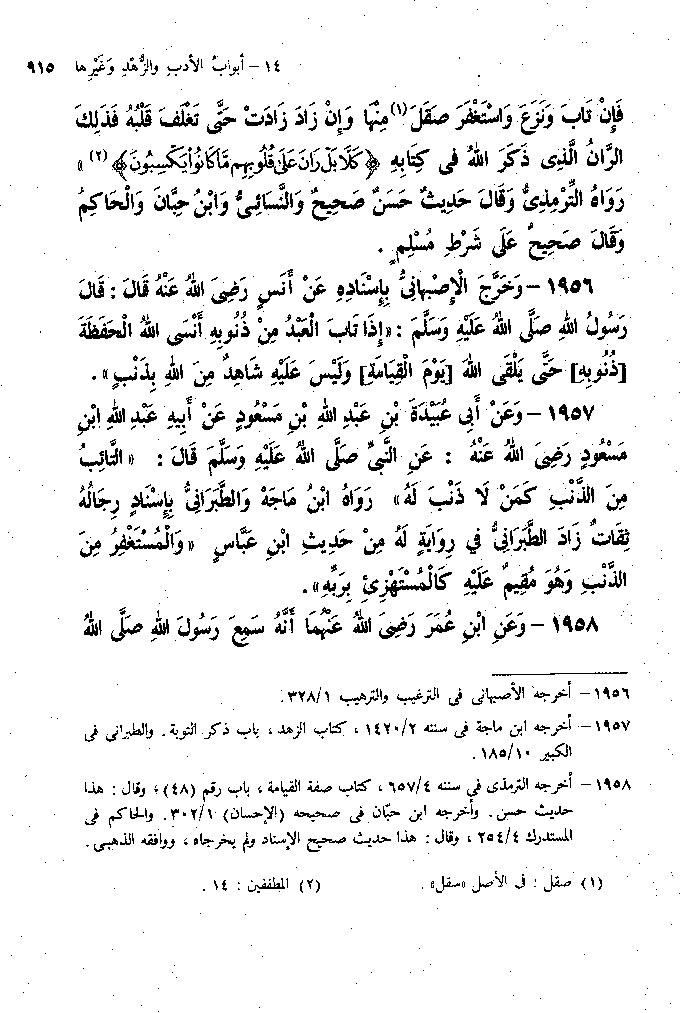 ١٤ – أبوابُ الأدبِ والزُّهْدِ وَغَيْرِها ٩١٥
فَإِنْ تَابَ وَنَزَعَ وَاسْتَغْفَرَ صَقَلَ(١) مِنْهَا وَإِنْ زَادَ زَادَتْ حَتَّى تَغْلَفَ قَلْبُهُ فَذَلِكَ
الرَّانُ الَّذِى ذَكَرَ اللهُ فى كِتَابِهِ ﴿كَلَّا بَلْ رَانَ عَلَىٰ قُلُوبِهِم مَّا كَانُوا۟ يَكْسِبُونَ﴾(٢) »
رَوَاهُ التِّرْمِذِىُّ وَقَالَ حَدِيثٌ حَسَنٌ صَحِيحٌ وَالنَّسَائِىُّ وَابْنُ حِبَّانَ وَالْحَاكِمُ
وَقَالَ صَحِيحٌ عَلَى شَرْطِ مُسْلِمٍ .
١٩٥٦ – وَخَرَّجَ الْإِصْبِهَانِىُّ بِإِسْنَادِهِ عَنْ أَنَسٍ رَضِىَ اللهُ عَنْهُ قَالَ : قَالَ
رَسُولُ اللهِ صَلَّى اللهُ عَلَيْهِ وَسَلَّمَ : «إِذَا تَابَ الْعَبْدُ مِنْ ذُنُوبِهِ أَنْسَى اللهُ الْحَفَظَةَ
[ذُنُوبِهِ] حَتَّى يَلْقَى اللهَ [يَوْمَ الْقِيَامَةِ] وَلَيْسَ عَلَيْهِ شَاهِدٌ مِنَ اللهِ بِذَنْبٍ» .
١٩٥٧ – وَعَنْ أَبِى عُبَيْدَةَ بْنِ عَبْدِ اللهِ بْنِ مَسْعُودٍ عَنْ أَبِيهِ عَبْدِ اللهِ ابْنِ
مَسْعُودٍ رَضِىَ اللهُ عَنْهُ : عَنِ النَّبِىِّ صَلَّى اللهُ عَلَيْهِ وَسَلَّمَ قَالَ : «التَّائِبُ
مِنَ الذَّنْبِ كَمَنْ لَا ذَنْبَ لَهُ» رَوَاهُ ابْنُ مَاجَهْ وَالطَّبَرَانِىُّ بِإِسْنَادٍ رِجَالُهُ
ثِقَاتٌ زَادَ الطَّبَرَانِىُّ في رِوَايَةٍ لَهُ مِنْ حَدِيثِ ابْنِ عَبَّاسٍ «وَالْمُسْتَغْفِرُ مِنَ
الذَّنْبِ وَهُوَ مُقِيمٌ عَلَيْهِ كَالْمُسْتَهْزِئِ بِرَبِّهِ» .
١٩٥٨ – وَعَنِ ابْنِ عُمَرَ رَضِىَ اللهُ عَنْهُمَا أَنَّهُ سَمِعَ رَسُولَ اللهِ صَلَّى اللهُ
١٩٥٦ – أخرجه الأصبهانى فى الترغيب والترهيب ٣٢٨/١ .
١٩٥٧ – أخرجه ابن ماجة فى سننه ١٤٢٠/٢ ، كتاب الزهد ، باب ذكر التوبة . والطبرانى فى
الكبير ١٨٥/١٠ .
١٩٥٨ – أخرجه الترمذى فى سننه ٦٥٧/٤ ، كتاب صفة القيامة ، باب رقم (٤٨) ؛ وقال : هذا
حديث حسن . وأخرجه ابن حبّان فى صحيحه (الإحسان) ٣٠٢/١ . والحاكم فى
المستدرك ٢٥٤/٤ ، وقال : هذا حديث صحيح الإسناد ولم يخرجاه ، ووافقه الذهبى .
(١) صقل : فى الأصل «سقل» . (٢) المطففين : ١٤ .